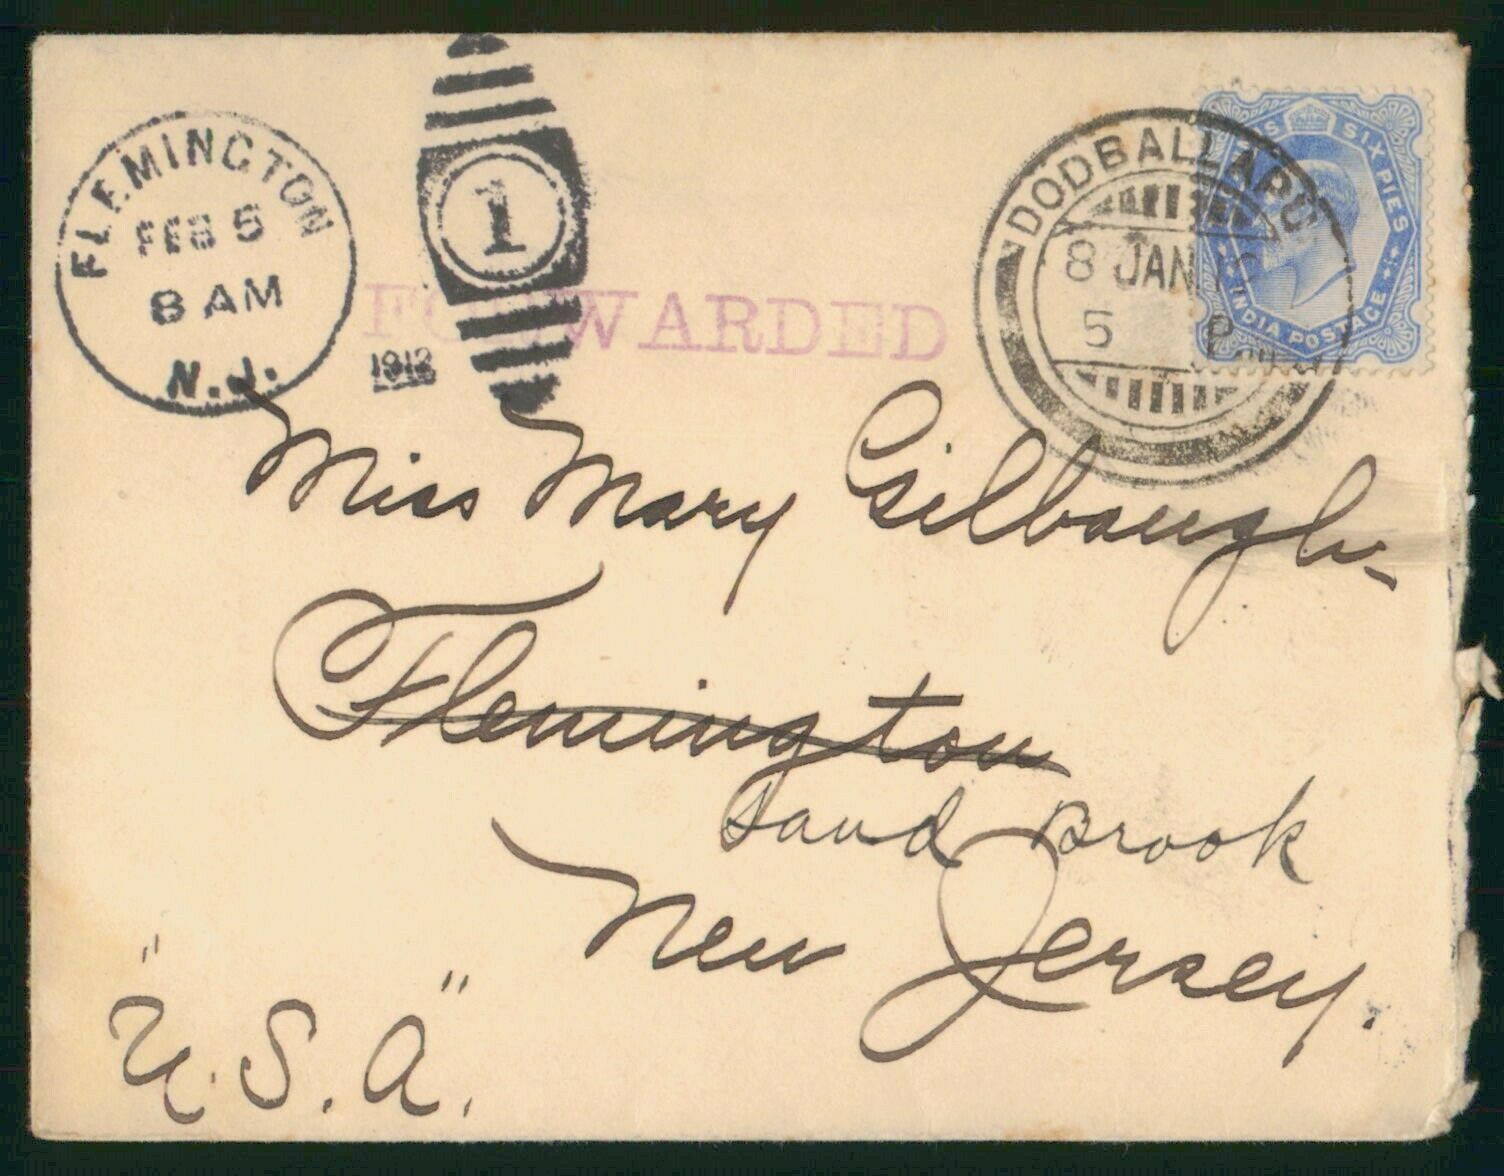 FLEMINGTON
FEB 5
8 AM
N.J.
1912
1
FORWARDED
DODBALLAPU
8 JAN
5 P
SIX PIES
INDIA POSTAGE
Miss Mary Gilbaugh
Flemington
Sand Brook
New Jersey.
"U.S.A."